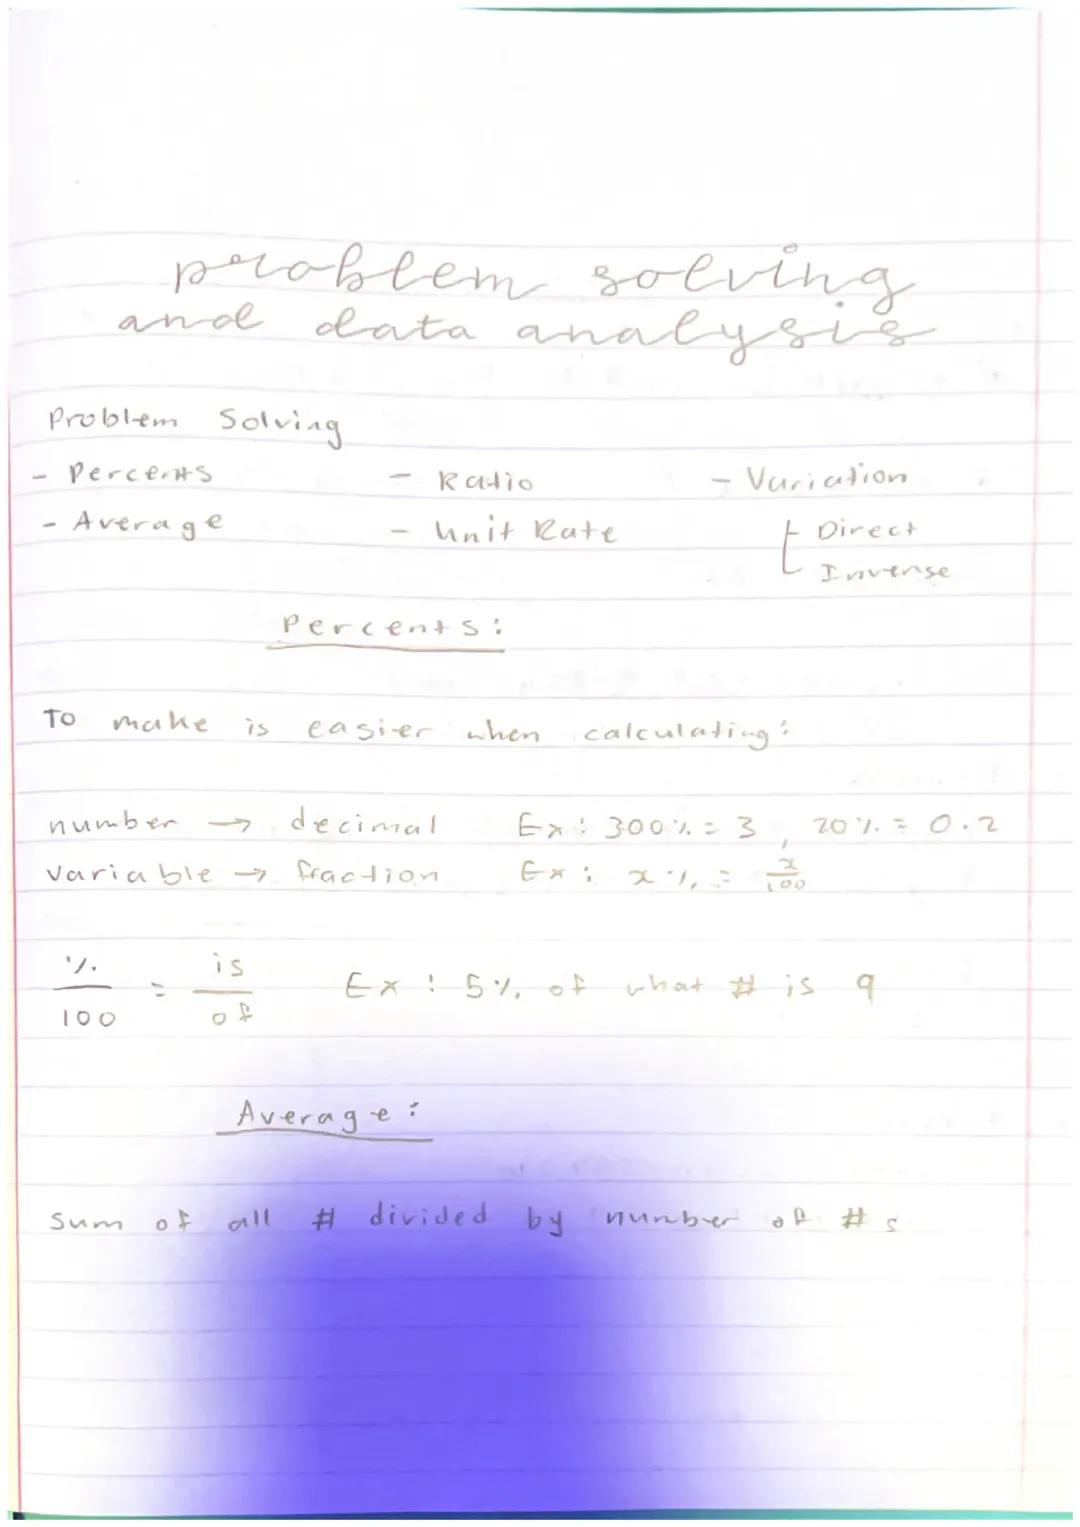 problem solving
and data analysis
Problem Solving
- Percents - Ratio - Variation
- Average - Unit Rate Direct
Inverse
Percents:
To make is easier when calculating:
number → decimal Ex: 300% = 3, 20% = 0.2
variable → fraction Ex: x% = x/100
%/100 = is/of Ex: 5% of what # is 9
Average:
Sum of all # divided by number of #s